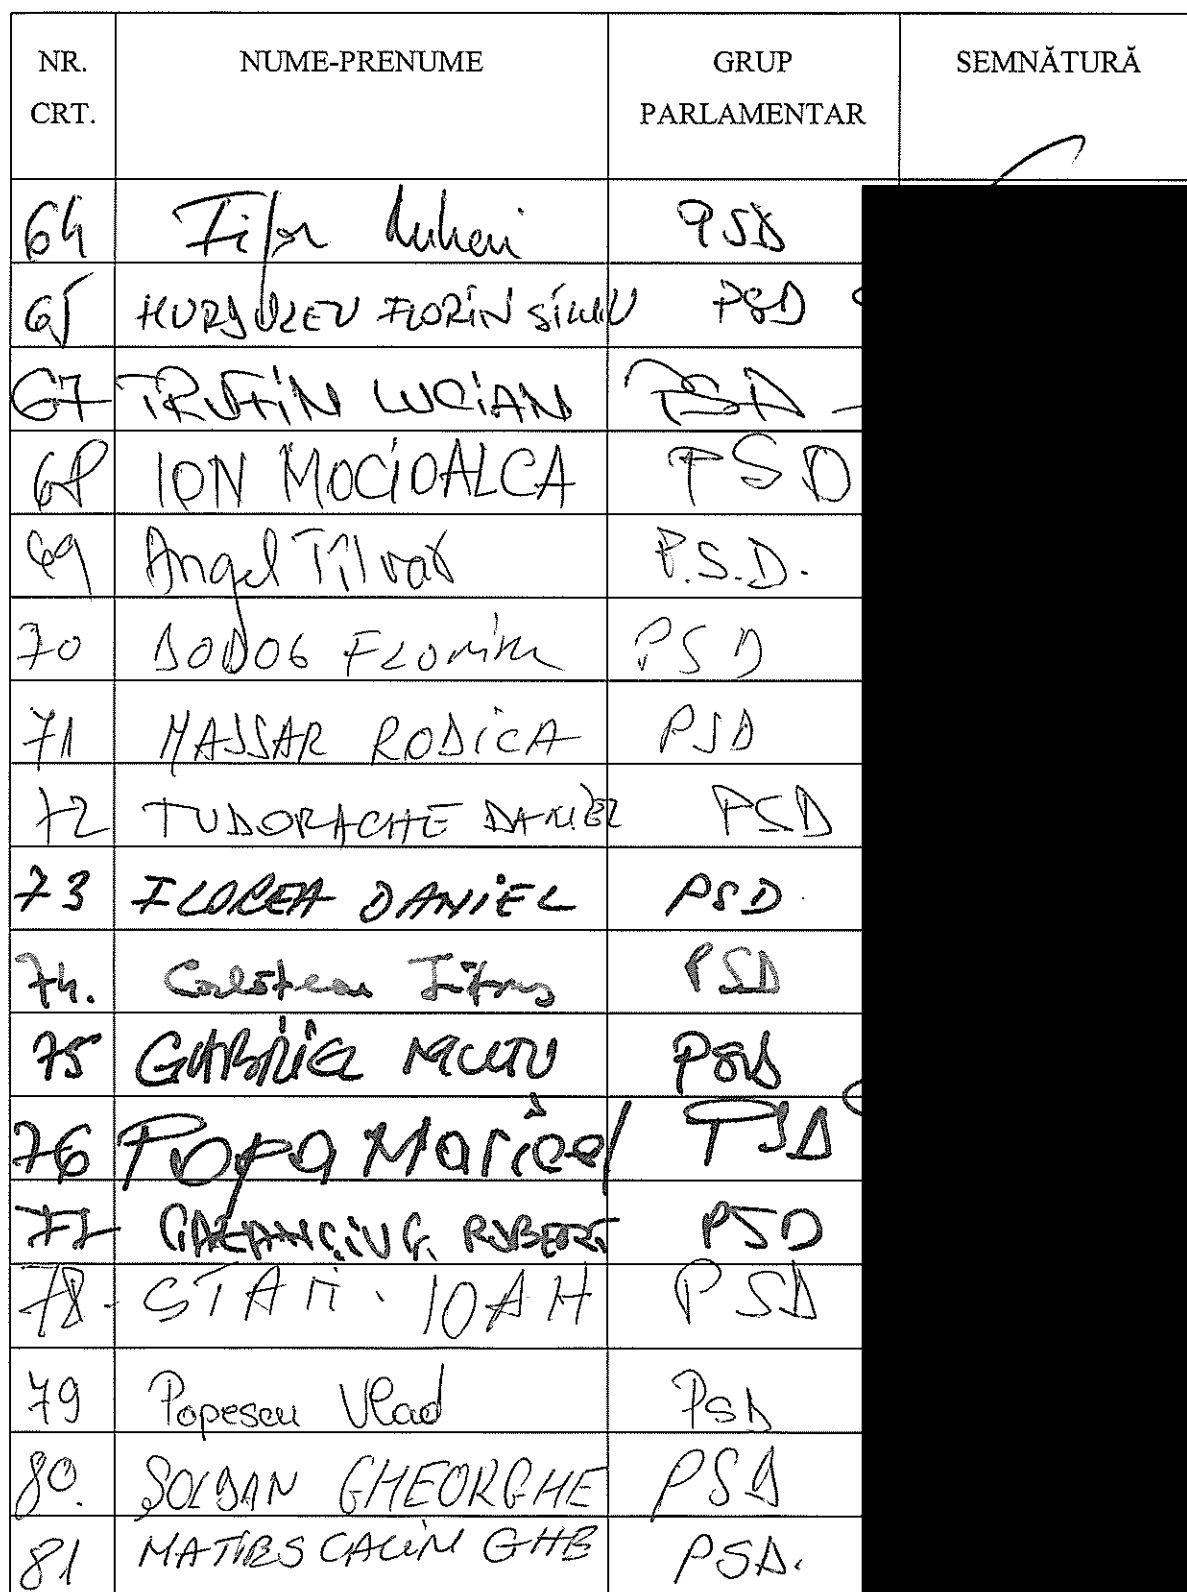 NR. CRT. NUME-PRENUME GRUP PARLAMENTAR SEMNĂTURĂ
64 Fifor PSD
65 FLORIN PSD
67 TRUFIN LUCIAN PSD
68 ION MOCIOALCA PSD
69 Angel Tîlvar P.S.D.
70 DODOG FLORINA PSD
71 NASSAR RODICA PSD
72 TUDORACHE DANIEL PSD
73 FLOREA DANIEL PSD
74. PSD
75 GABRIEL MUTU PSD
76 Popa Maricel PSD
77 CAZANCIUC ROBERT PSD
78. STAN IOAN PSD
79 Popescu Vlad PSD
80. ȘOLDAN GHEORGHE PSD
81 MATIES CALIN GHE PSD.